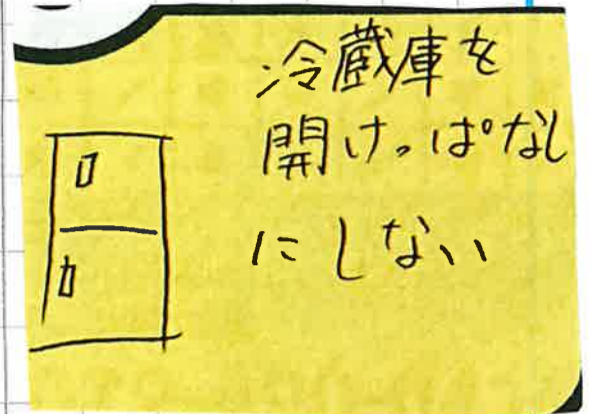 冷蔵庫を
開けっぱなし
にしない